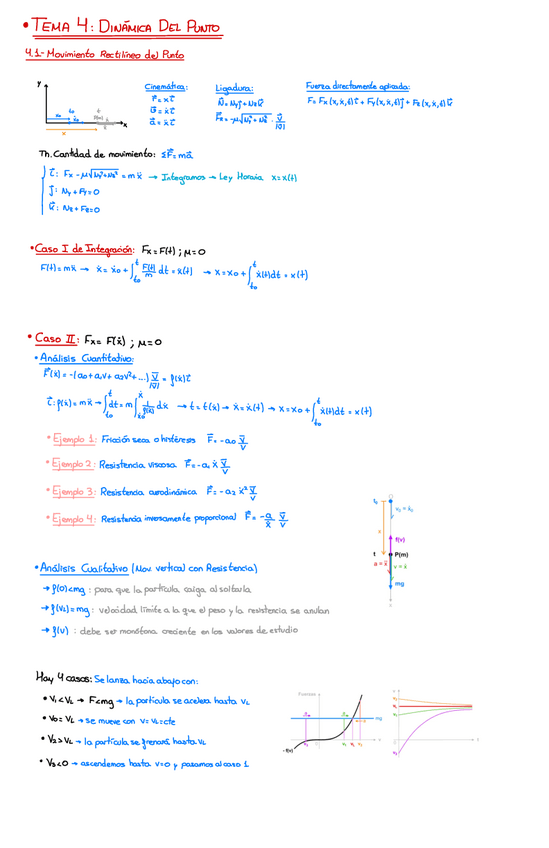 • TEMA 4: DINÁMICA DEL PUNTO
4.1- Movimiento Rectilíneo del Punto
Cinemática:
r̄ = x ī
v̄ = ẋ ī
ā = ẍ ī
Ligadura:
N̄ = Nyj̄ + Nzk̄
F̄R = -μ√(Ny² + Nz²) · v̄/|v̄|
Fuerza directamente aplicada:
F = Fx(x,ẋ,t)ī + Fy(x,ẋ,t)j̄ + Fz(x,ẋ,t)k̄
Th. Cantidad de movimiento: ΣF̄ = mā
ī: Fx - μ√(Ny² + Nz²) = mẍ → Integramos → Ley Horaria x = x(t)
j̄: Ny + Fy = 0
k̄: Nz + Fz = 0
• Caso I de Integración: Fx = F(t) ; μ = 0
F(t) = mẍ → ẋ = ẋ0 + ∫t0^t F(t)/m dt = ẋ(t) → x = x0 + ∫t0^t ẋ(t)dt = x(t)
• Caso II: Fx = F(ẋ) ; μ = 0
• Análisis Cuantitativo:
F̄(ẋ) = -(a0 + a1v + a2v² + ...) v̄/|v̄| = f(ẋ)ī
ī: f(ẋ) = mẍ → ∫t0^t dt = m∫ẋ0^ẋ 1/f(ẋ) dẋ → t = t(ẋ) → ẋ = ẋ(t) → x = x0 + ∫t0^t ẋ(t)dt = x(t)
• Ejemplo 1: Fricción seca o histéresis F̄ = -a0 v̄/v
• Ejemplo 2: Resistencia viscosa F̄ = -a1 ẋ v̄/v
• Ejemplo 3: Resistencia aerodinámica F̄ = -a2 ẋ² v̄/v
• Ejemplo 4: Resistencia inversamente proporcional F̄ = -a/ẋ v̄/v
t0
v0 = ẋ0
x
f(v)
t
P(m)
a = ẍ
v = ẋ
mg
• Análisis Cualitativo (Mov. vertical con Resistencia)
→ f(0)<mg : para que la partícula caiga al soltarla
→ f(VL) = mg : velocidad límite a la que el peso y la resistencia se anulan
→ f(v) : debe ser monótona creciente en los valores de estudio
Hay 4 casos: Se lanza hacia abajo con:
• V1 < VL → F<mg → la partícula se acelera hasta VL
• V0 = VL → se mueve con v = VL = cte
• V2 > VL → la partícula se frenará hasta VL
• V3 < 0 → ascendemos hasta v=0 y pasamos al caso 1
Fuerzas
mg
-f(v)